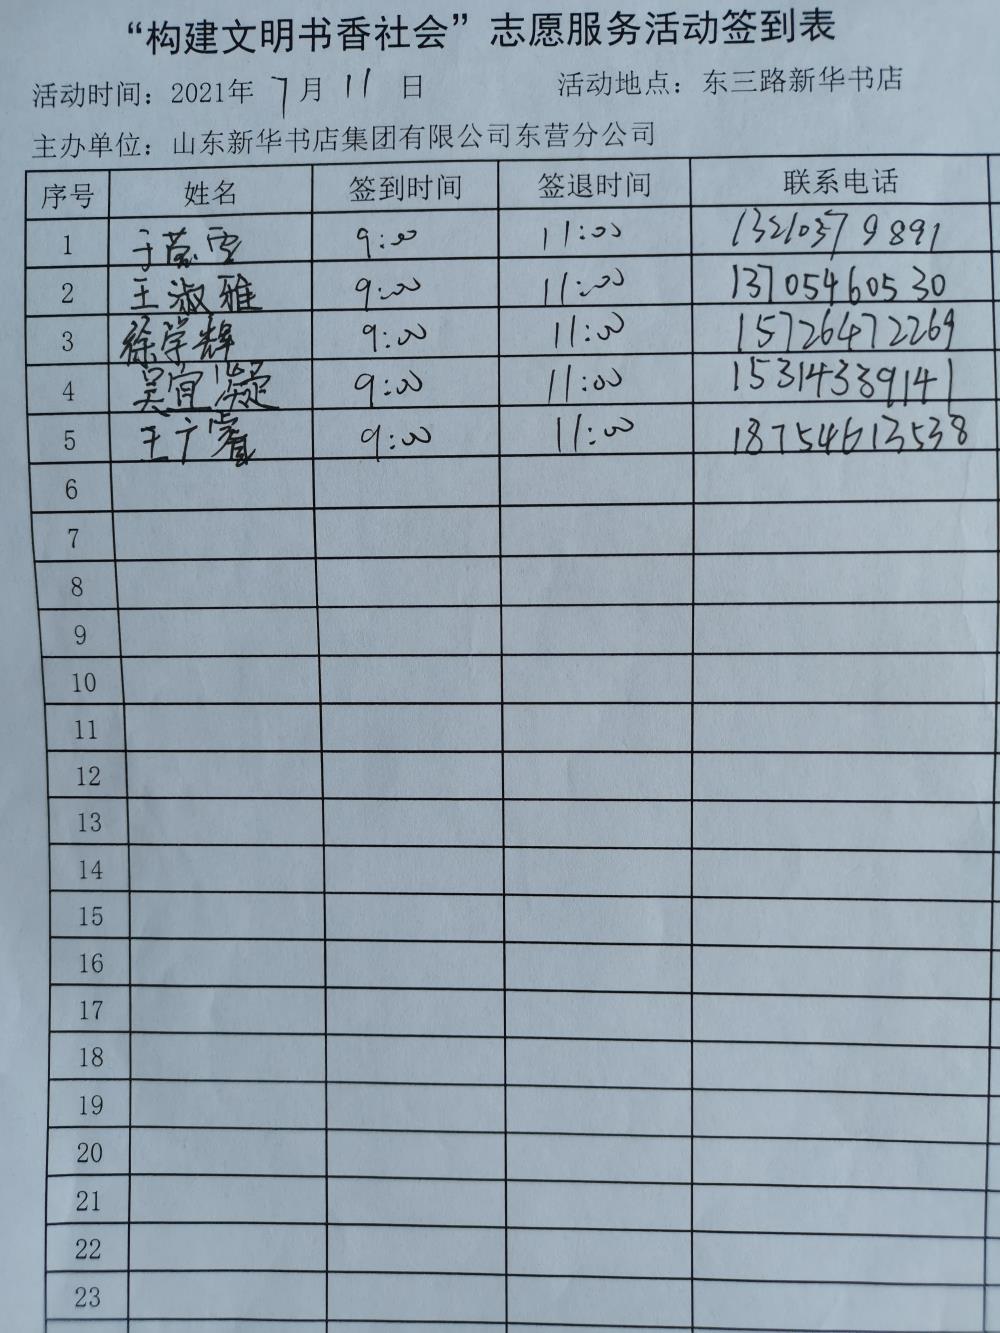 “构建文明书香社会”志愿服务活动签到表
活动时间：2021年 7月 11 日 活动地点：东三路新华书店
主办单位：山东新华书店集团有限公司东营分公司
序号 姓名 签到时间 签退时间 联系电话
1 于 雪 9:00 11:00 13210379891
2 王淑雅 9:00 11:00 13705460530
3 徐学辉 9:00 11:00 15726472269
4 吴宜凝 9:00 11:00 15314339141
5 王广睿 9:00 11:00 18754613538
6
7
8
9
10
11
12
13
14
15
16
17
18
19
20
21
22
23